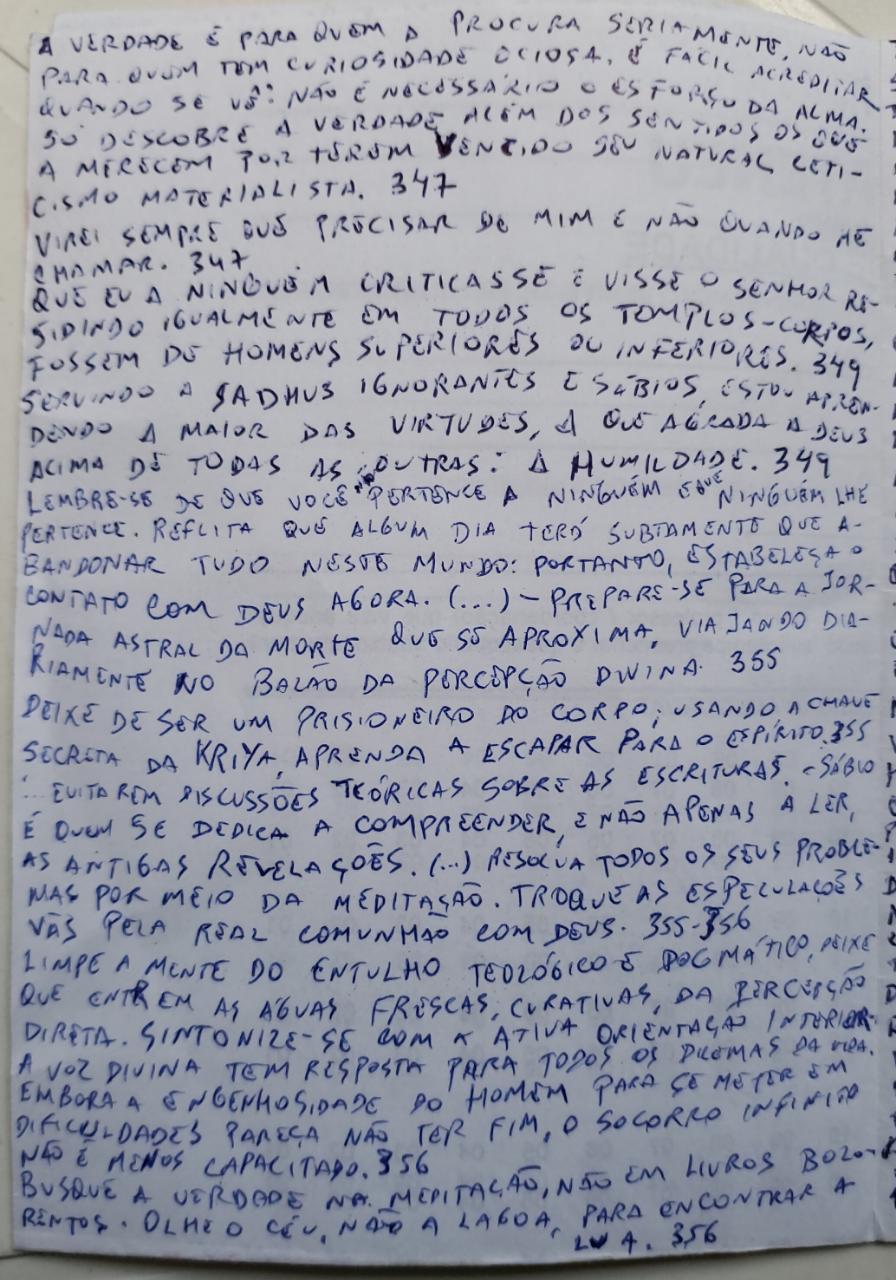 A VERDADE É PARA QUEM A PROCURA SERIAMENTE, NÃO
PARA QUEM TEM CURIOSIDADE OCIOSA. É FÁCIL ACREDITAR
QUANDO SE VÊ: NÃO É NECESSÁRIO O ESFORSO DA ALMA.
SÓ DESCOBRE A VERDADE ALÉM DOS SENTIDOS OS QUE
A MERECEM POR TEREM VENCIDO SEU NATURAL CETI-
CISMO MATERIALISTA. 347
VIREI SEMPRE QUE PRECISAR DE MIM E NÃO QUANDO ME
CHAMAR. 347
QUE EU A NINGUÉM CRITICASSE E VISSE O SENHOR RE-
SIDINDO IGUALMENTE EM TODOS OS TEMPLOS-CORPOS,
FOSSEM DE HOMENS SUPERIORES OU INFERIORES. 349
SERVINDO A SADHUS IGNORANTES E SÁBIOS, ESTOU APREN-
DENDO A MAIOR DAS VIRTUDES, A QUE AGRADA A DEUS
ACIMA DE TODAS AS OUTRAS: A HUMILDADE. 349
LEMBRE-SE DE QUE VOCÊ NÃO PERTENCE A NINGUÉM E QUE NINGUÉM LHE
PERTENCE. REFLITA QUE ALGUM DIA TERÁ SUBTAMENTE QUE A-
BANDONAR TUDO NESTE MUNDO: PORTANTO, ESTABELEÇA O
CONTATO COM DEUS AGORA. (...) - PREPARE-SE PARA A JOR-
NADA ASTRAL DA MORTE QUE SE APROXIMA, VIAJANDO DIA-
RIAMENTE NO BALÃO DA PERCEPÇÃO DIVINA. 355
DEIXE DE SER UM PRISIONEIRO DO CORPO; USANDO A CHAVE
SECRETA DA KRIYA, APRENDA A ESCAPAR PARA O ESPÍRITO. 355
... EVITAREM DISCUSSÕES TEÓRICAS SOBRE AS ESCRITURAS. - SÁBIO
É QUEM SE DEDICA A COMPREENDER, E NÃO APENAS A LER,
AS ANTIGAS REVELAÇÕES. (...) RESOLVA TODOS OS SEUS PROBLE-
MAS POR MEIO DA MEDITAÇÃO. TROQUE AS ESPECULAÇÕES
VÃS PELA REAL COMUNHÃO COM DEUS. 355-356
LIMPE A MENTE DO ENTULHO TEOLÓGICO E DOGMÁTICO, DEIXE
QUE ENTREM AS ÁGUAS FRESCAS, CURATIVAS, DA PERCEPÇÃO
DIRETA. SINTONIZE-SE COM A ATIVA ORIENTAÇÃO INTERIOR.
A VOZ DIVINA TEM RESPOSTA PARA TODOS OS DILEMAS DA VIDA.
EMBORA A ENGENHOSIDADE DO HOMEM PARA SE METER EM
DIFICULDADES PAREÇA NÃO TER FIM, O SOCORRO INFINITO
NÃO É MENOS CAPACITADO. 356
BUSQUE A VERDADE NA MEDITAÇÃO, NÃO EM LIVROS BOLO-
RENTOS. OLHE O CÉU, NÃO A LAGOA, PARA ENCONTRAR A
LUA. 356